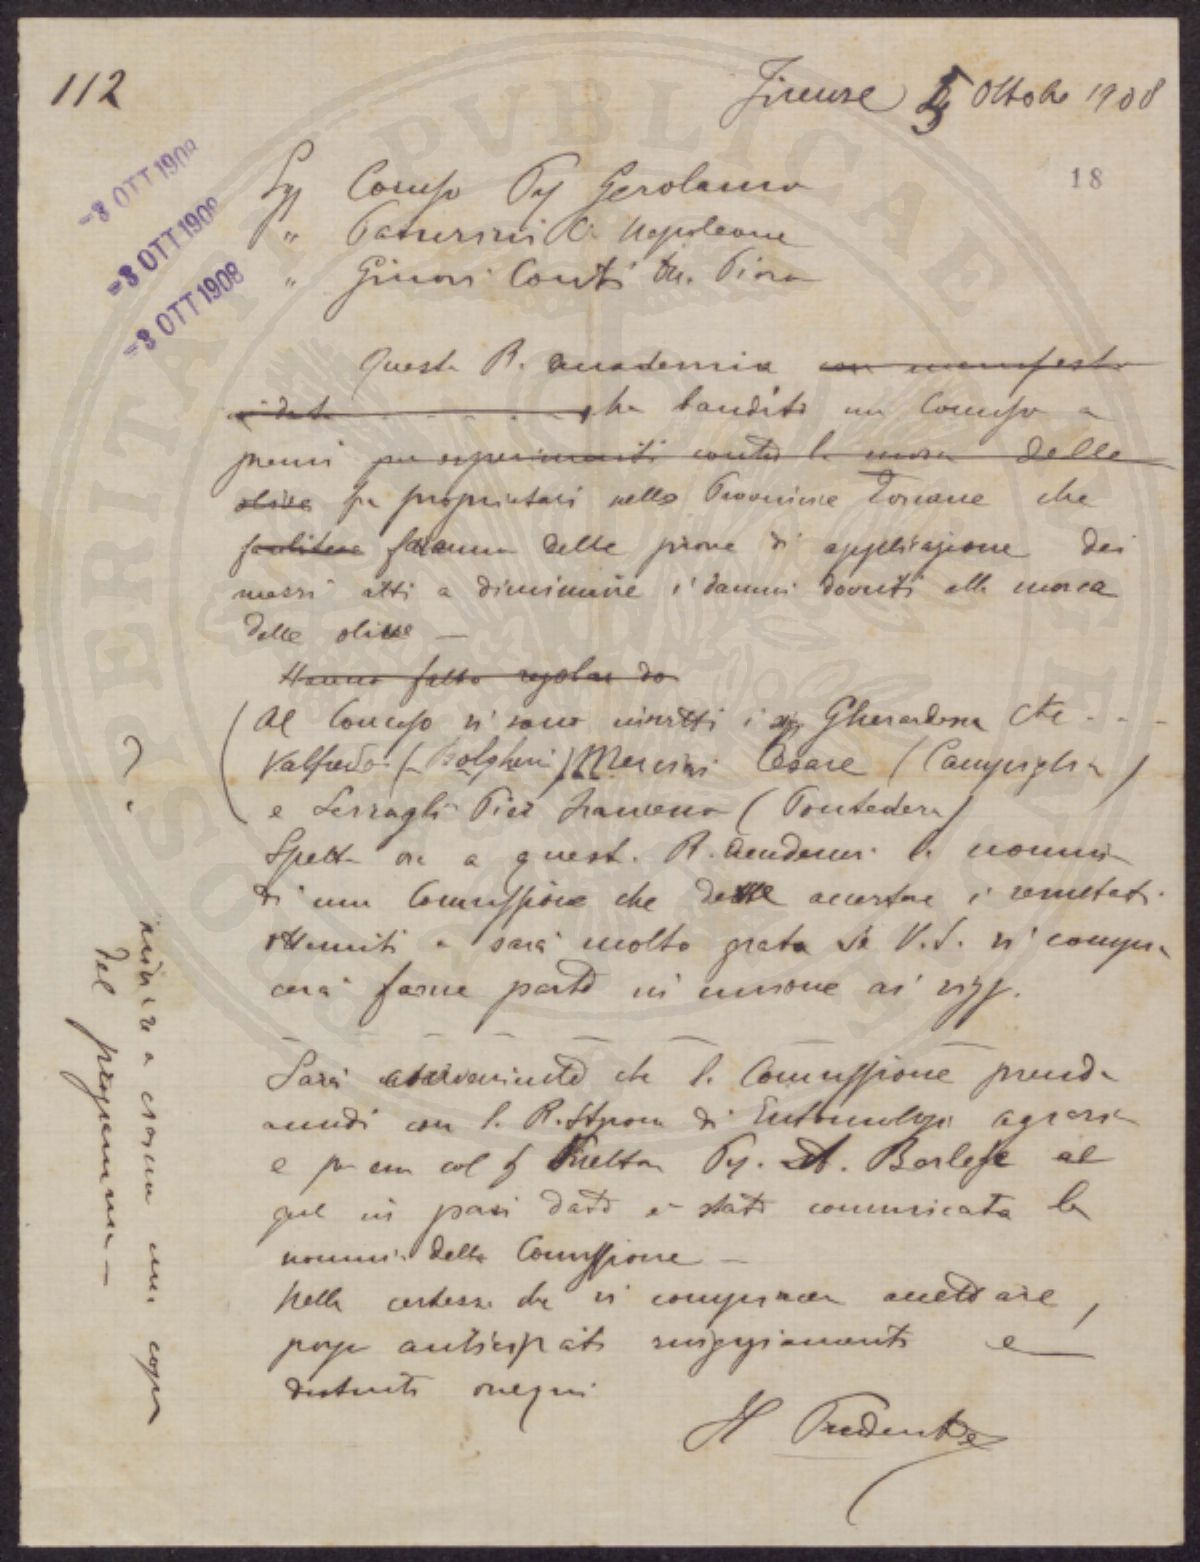 112
Firenze 5 Ottobre 1908
-8 OTT 1908
-8 OTT 1908
-8 OTT 1908
18
Sigg Caruso Prof Gerolamo
" Passerini C. Napoleone
" Ginori Conti Piero
Questa R. Accademia con manifesto
in data ha bandito un Concorso a
premi per esperimenti contro la mosca delle
olive fra proprietari nelle Provincie Toscane che
faranno delle prove di applicazione dei
mezzi atti a diminuire i danni dovuti alla mosca
delle olive —
Hanno fatto regolare do
(Al Concorso si sono iscritti i sigg Gherardesca
Valfredo (Bolgheri) Cesare (Campiglia)
e Serragli Pier Francesco (Pontedera)
Spetta ora a questa R. Accademia la nomina
di una Commissione che deve accertare i resultati
ottenuti e sarà molto grata se V.S. si compia
cerà farne parte in unione ai sigg.
Sarà conveniente che la Commissione prenda
accordi con la R. Stazione di Entomologia agraria
e per essa col Direttore Prof. A. Berlese al
quale in pari data è stata comunicata la
nomina della Commissione —
Nella certezza che si compiacerà accettare,
porgo anticipati ringraziamenti e
distinti ossequi
Il Presidente
inviare a ciascuno una copia
del programma —